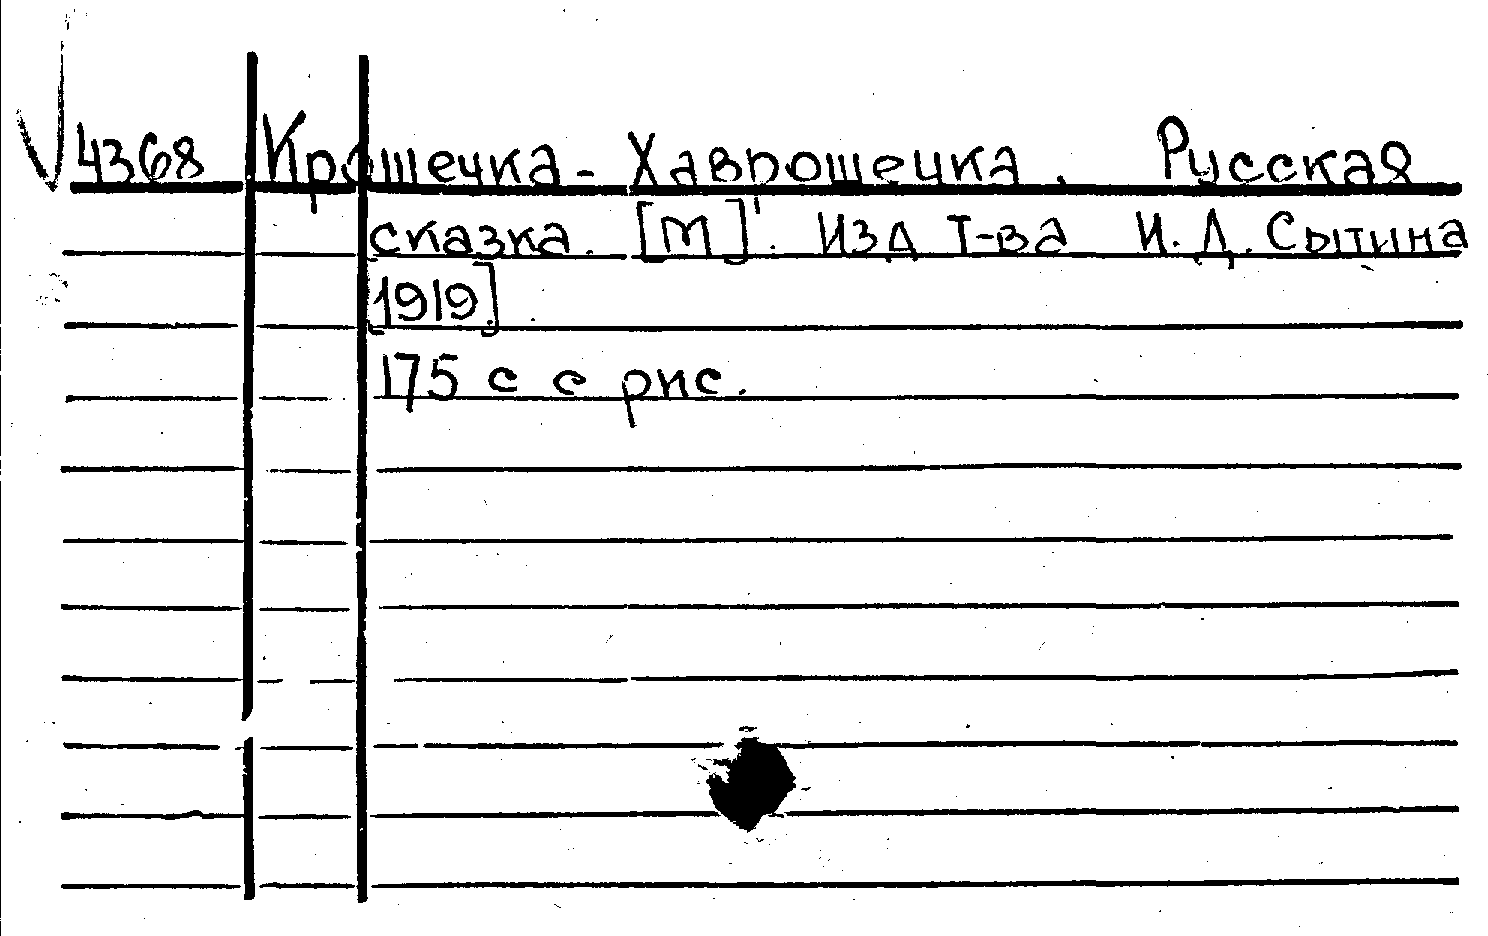 4368 Крошечка-Хаврошечка. Русская
сказка. [М]. Изд Т-ва И. Д. Сытина
[1919]
175 с с рис.